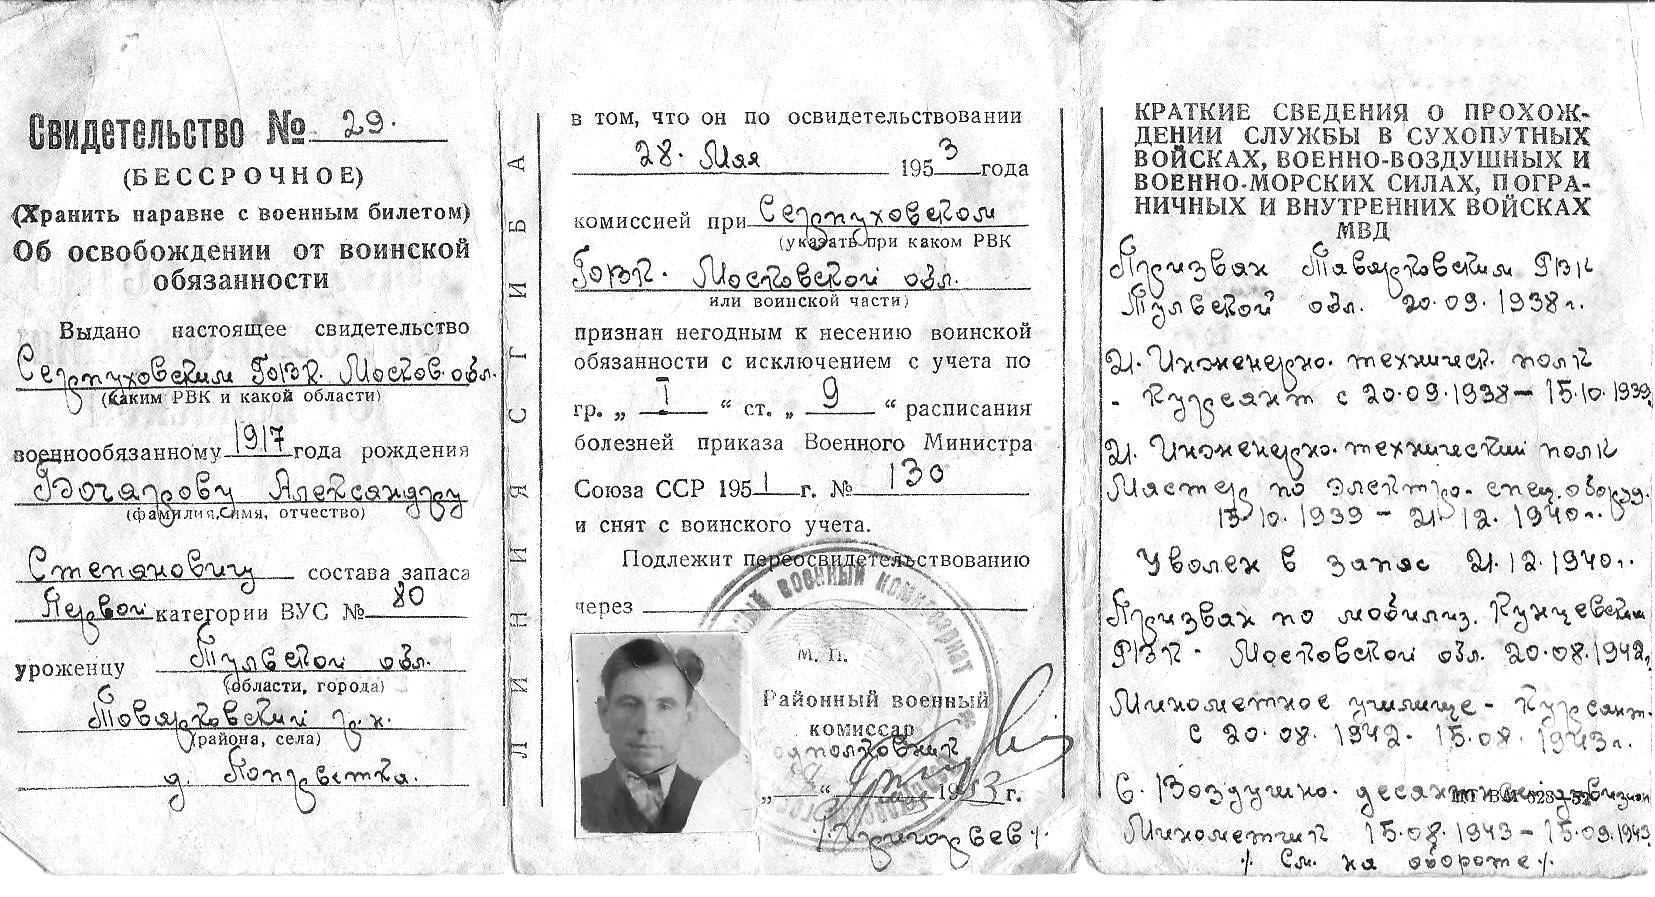 Свидетельство № 29.
(БЕССРОЧНОЕ)
(Хранить наравне с военным билетом)
Об освобождении от воинской
обязанности
Выдано настоящее свидетельство
Серпуховским ГВК. Москов. обл.
(каким РВК и какой области)
военнообязанному 1917 года рождения
Бочарову Александру
(фамилия, имя, отчество)
Степановичу состава запаса
Первой категории ВУС № 80
уроженцу Тульской обл.
(области, города)
Товарковский р.н.
(района, села)
д.
ЛИНИЯ СГИБА
в том, что он по освидетельствовании
28. Мая 1953 года
комиссией при Серпуховском
(указать при каком РВК
ГВК. Московской обл.
или воинской части)
признан негодным к несению воинской
обязанности с исключением с учета по
гр. „ I “ ст. „ 9 “ расписания
болезней приказа Военного Министра
Союза ССР 1951 г. № 130
и снят с воинского учета.
Подлежит переосвидетельствованию
через
ВОЕННЫЙ КОМИССАРИАТ
М. П.
Районный военный
комиссар
подполковник
1953 г.
/Григорьев/.
КРАТКИЕ СВЕДЕНИЯ О ПРОХОЖ-
ДЕНИИ СЛУЖБЫ В СУХОПУТНЫХ
ВОЙСКАХ, ВОЕННО-ВОЗДУШНЫХ И
ВОЕННО-МОРСКИХ СИЛАХ, ПОГРА-
НИЧНЫХ И ВНУТРЕННИХ ВОЙСКАХ
МВД
Призван Таварковским РВК
Тульской обл. 20.09.1938г.
21. Инженерно. техническ. полк
- Курсант с 20.09.1938 – 15.10.1939
21. Инженерно. технический полк
Мастер по электро. спец. оборуд.
15.10.1939 – 21.12.1940г.
Уволен в запас 21.12.1940г.
Призван по мобилиз. Кунцевским
РВК. Московской обл. 20.08.1942г
Минометное училище – Курсант.
с 20.08.1942. 15.08.1943г.
6. Воздушно. десантная дивизия
Минометчик 15.08.1943 – 15.09.1943
/. См. на обороте /.